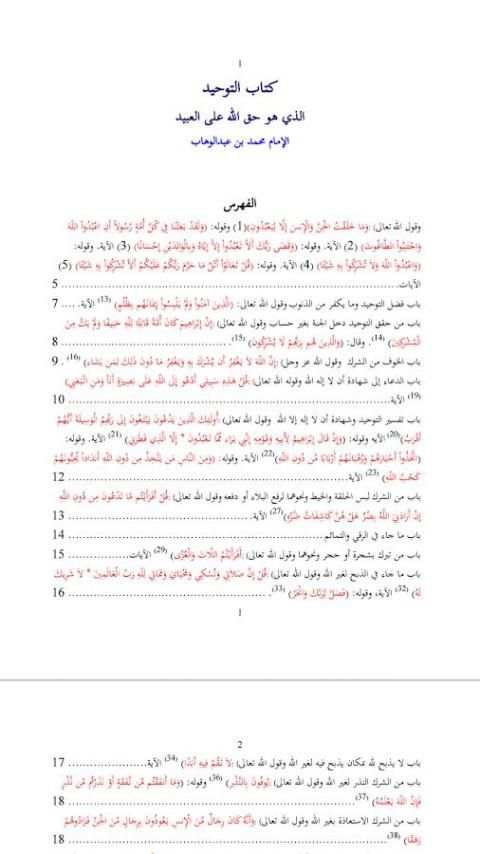 1
كتاب التوحيد
الذي هو حق الله على العبيد
الإمام محمد بن عبدالوهاب
الفهرس
وقول الله تعالى: (وَمَا خَلَقْتُ الْجِنَّ وَالْإِنسَ إِلَّا لِيَعْبُدُونِ)(1) وقوله: (وَلَقَدْ بَعَثْنَا فِي كُلِّ أُمَّةٍ رَّسُولاً أَنِ اعْبُدُواْ اللّهَ
وَاجْتَنِبُواْ الطَّاغُوتَ) (2) الآية. وقوله: (وَقَضَى رَبُّكَ أَلاَّ تَعْبُدُواْ إِلاَّ إِيَّاهُ وَبِالْوَالِدَيْنِ إِحْسَانًا) (3) الآية. وقوله:
(وَاعْبُدُواْ اللّهَ وَلاَ تُشْرِكُواْ بِهِ شَيْئًا) (4) الآية. وقوله: (قُلْ تَعَالَوْاْ أَتْلُ مَا حَرَّمَ رَبُّكُمْ عَلَيْكُمْ أَلاَّ تُشْرِكُواْ بِهِ شَيْئًا) (5)
الآيات. 5
باب فضل التوحيد وما يكفر من الذنوب وقول الله تعالى: (الَّذِينَ آمَنُواْ وَلَمْ يَلْبِسُواْ إِيمَانَهُم بِظُلْمٍ) (13) الآية. .... 7
باب من حقق التوحيد دخل الجنة بغير حساب وقول الله تعالى: (إِنَّ إِبْرَاهِيمَ كَانَ أُمَّةً قَانِتًا لِلّهِ حَنِيفًا وَلَمْ يَكُ مِنَ
الْمُشْرِكِينَ) (14). وقال: (وَالَّذِينَ هُم بِرَبِّهِمْ لَا يُشْرِكُونَ) (15). 8
باب الخوف من الشرك وقول الله عز وجل: (إِنَّ اللّهَ لاَ يَغْفِرُ أَن يُشْرَكَ بِهِ وَيَغْفِرُ مَا دُونَ ذَلِكَ لِمَن يَشَاء) (16). 9
باب الدعاء إلى شهادة أن لا إله إلا الله وقوله الله تعالى: (قُلْ هَذِهِ سَبِيلِي أَدْعُو إِلَى اللّهِ عَلَى بَصِيرَةٍ أَنَاْ وَمَنِ اتَّبَعَنِي)
(19) الآية. 10
باب تفسير التوحيد وشهادة أن لا إله إلا الله وقول الله تعالى: (أُولَئِكَ الَّذِينَ يَدْعُونَ يَبْتَغُونَ إِلَى رَبِّهِمُ الْوَسِيلَةَ أَيُّهُمْ
أَقْرَبُ) (20) الآيه وقوله: (وَإِذْ قَالَ إِبْرَاهِيمُ لِأَبِيهِ وَقَوْمِهِ إِنَّنِي بَرَاء مِّمَّا تَعْبُدُونَ * إِلَّا الَّذِي فَطَرَنِي) (21) الآية. وقوله:
(اتَّخَذُواْ أَحْبَارَهُمْ وَرُهْبَانَهُمْ أَرْبَابًا مِّن دُونِ اللّهِ) (22) الآية. وقوله: (وَمِنَ النَّاسِ مَن يَتَّخِذُ مِن دُونِ اللّهِ أَندَاداً يُحِبُّونَهُمْ
كَحُبِّ اللّهِ) (23) الآية. 12
باب من الشرك لبس الحلقة والخيط ونحوهما لرفع البلاء أو دفعه وقول الله تعالى: (قُلْ أَفَرَأَيْتُم مَّا تَدْعُونَ مِن دُونِ اللَّهِ
إِنْ أَرَادَنِيَ اللَّهُ بِضُرٍّ هَلْ هُنَّ كَاشِفَاتُ ضُرِّهِ) (27) الآية. 13
باب ما جاء في الرقي والتمائم 14
باب من تبرك بشجرة أو حجر ونحوهما وقول الله تعالى: (أَفَرَأَيْتُمُ اللَّاتَ وَالْعُزَّى) (29) الآيات. 15
باب ما جاء في الذبح لغير الله وقول الله تعالى: (قُلْ إِنَّ صَلاَتِي وَنُسُكِي وَمَحْيَايَ وَمَمَاتِي لِلّهِ رَبِّ الْعَالَمِينَ * لاَ شَرِيكَ
لَهُ) (32) الآية، وقوله: (فَصَلِّ لِرَبِّكَ وَانْحَرْ) (33). 16
1
2
باب لا يذبح لله بمكان يذبح فيه لغير الله وقول الله تعالى: (لاَ تَقُمْ فِيهِ أَبَدًا) (34) الآية. 17
باب من الشرك النذر لغير الله وقول الله تعالى: (يُوفُونَ بِالنَّذْرِ) (36) وقوله: (وَمَا أَنفَقْتُم مِّن نَّفَقَةٍ أَوْ نَذَرْتُم مِّن نَّذْرٍ
فَإِنَّ اللّهَ يَعْلَمُهُ) (37). 18
باب من الشرك الاستعاذة بغير الله وقول الله تعالى: (وَأَنَّهُ كَانَ رِجَالٌ مِّنَ الْإِنسِ يَعُوذُونَ بِرِجَالٍ مِّنَ الْجِنِّ فَزَادُوهُمْ
رَهَقًا) (38). 18